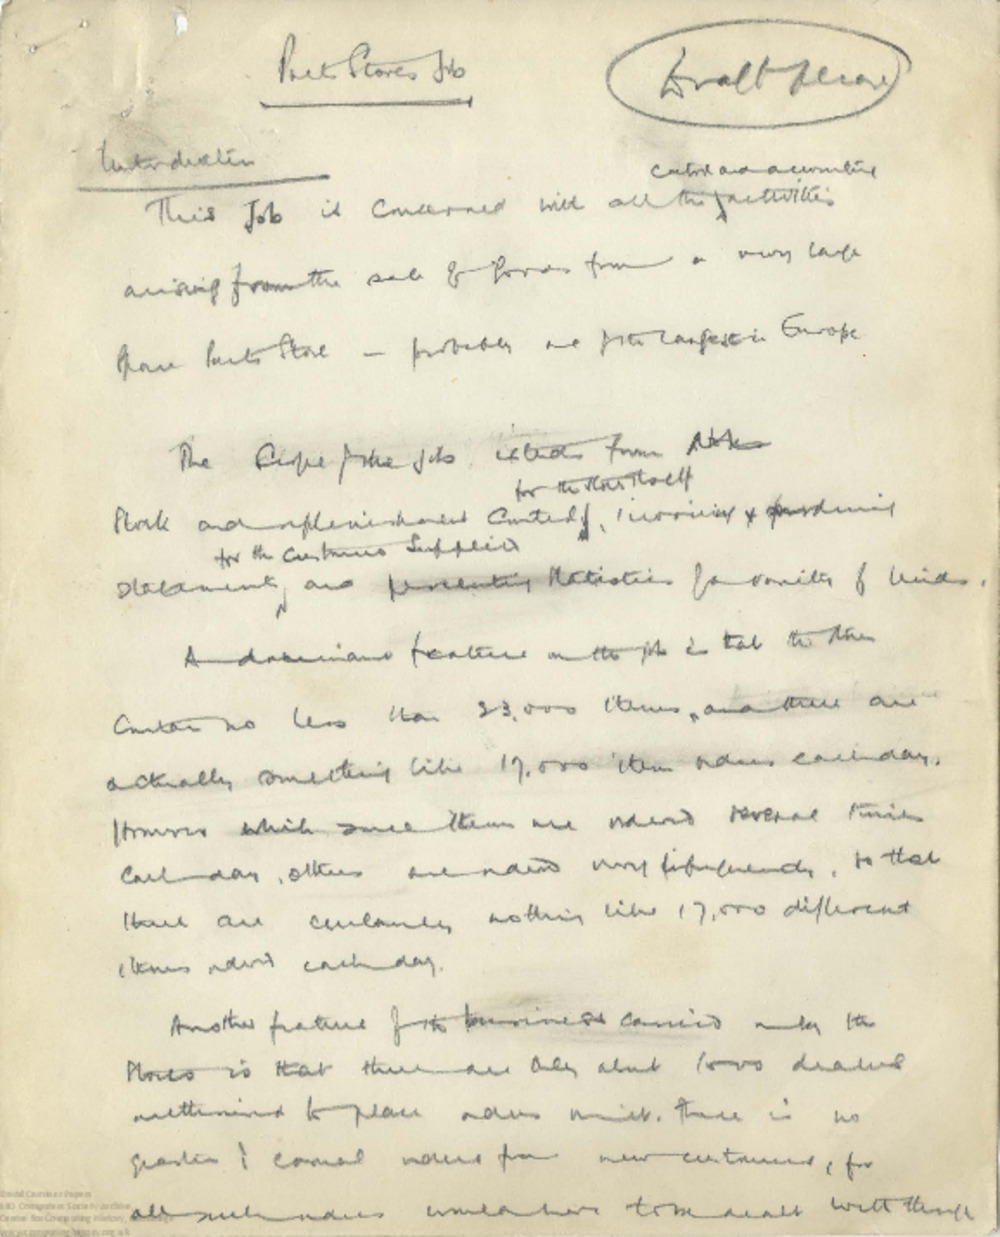 Parts Stores Job
Draft please
Introduction
control and accounting
This Job is concerned with all the activities
arising from the sale of goods from a very large
Spare Parts Store — probably one of the largest in Europe
The Scope of the job extends from
for the store itself
Stock and replenishment Control, invoicing & producing
for the customers supplied
statements, and statistics of a variety of kinds.
A feature in the job is that the store
Contains no less than 23,000 items, and there are
actually something like 17,000 item orders each day.
However which some items are ordered several times
each day, others are ordered very infrequently, so that
there are certainly nothing like 17,000 different
items ordered each day.
Another feature of the business carried on by the
Stores is that there are only about 1000 dealers
authorised to place orders on it. There is no
question of casual orders from new customers, for
all such orders would have to be dealt with through
David Caminer Papers
LEO Computers Society archive
Centre for Computing History, Cambridge